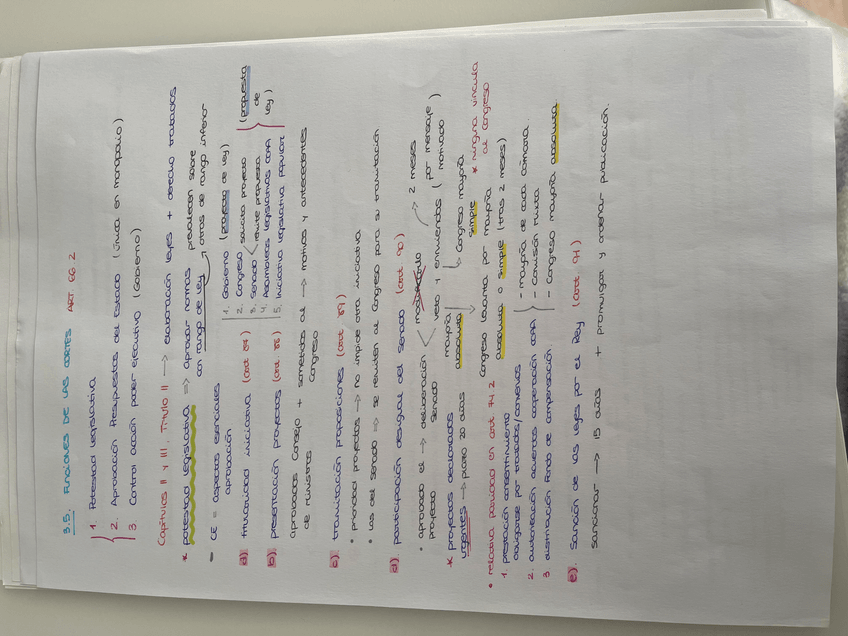 3.5. FUNCIONES DE LAS CORTES ART 66.2
1. Potestad legislativa
2. Aprobación Presupuestos del Estado (única en monopolio)
3 Control acción poder ejecutivo (Gobierno)
Capítulos II y III. Título III → elaboración leyes + derecho tratados
* potestad legislativa ⇒ aprobar normas con rango de ley prevalecen sobre otras de rango inferior
• CE = aspectos esenciales aprobación
a) titularidad iniciativa (art 87)
1. Gobierno (proyecto de ley)
2. Congreso
3. Senado
solicita proyecto
remite propuesta
4. Asambleas legislativas CCAA
5. Iniciativa legislativa popular
(propuesta de ley)
b) presentación proyectos (art 88)
aprobados Consejo de ministros + sometidos al Congreso → motivos y antecedentes
c) tramitación proposiciones (art 89)
• prioridad proyectos → no impide otra iniciativa
• las del Senado ⇒ se remiten al Congreso para su tramitación
d) participación desigual del Senado (art 90)
• aprobado el proyecto → deliberación Senado
2 meses
veto y enmiendas (por mensaje motivado)
mayoría absoluta
Congreso mayoría simple
* ninguna vincula al Congreso
* proyectos declarados urgentes → plazo 20 días
Congreso levanta por mayoría absoluta o simple (tras 2 meses)
• relativa paridad en art 74.2
1. prestación consentimiento obligarse por tratados/convenios
2. autorización acuerdos cooperación CCAA
3. distribución Fondo de compensación
- mayoría de cada cámara.
- Comisión Mixta
- Congreso mayoría absoluta
e) Sanción de las leyes por el Rey (art. 91)
sancionar → 15 días + promulgar y ordenar publicación.